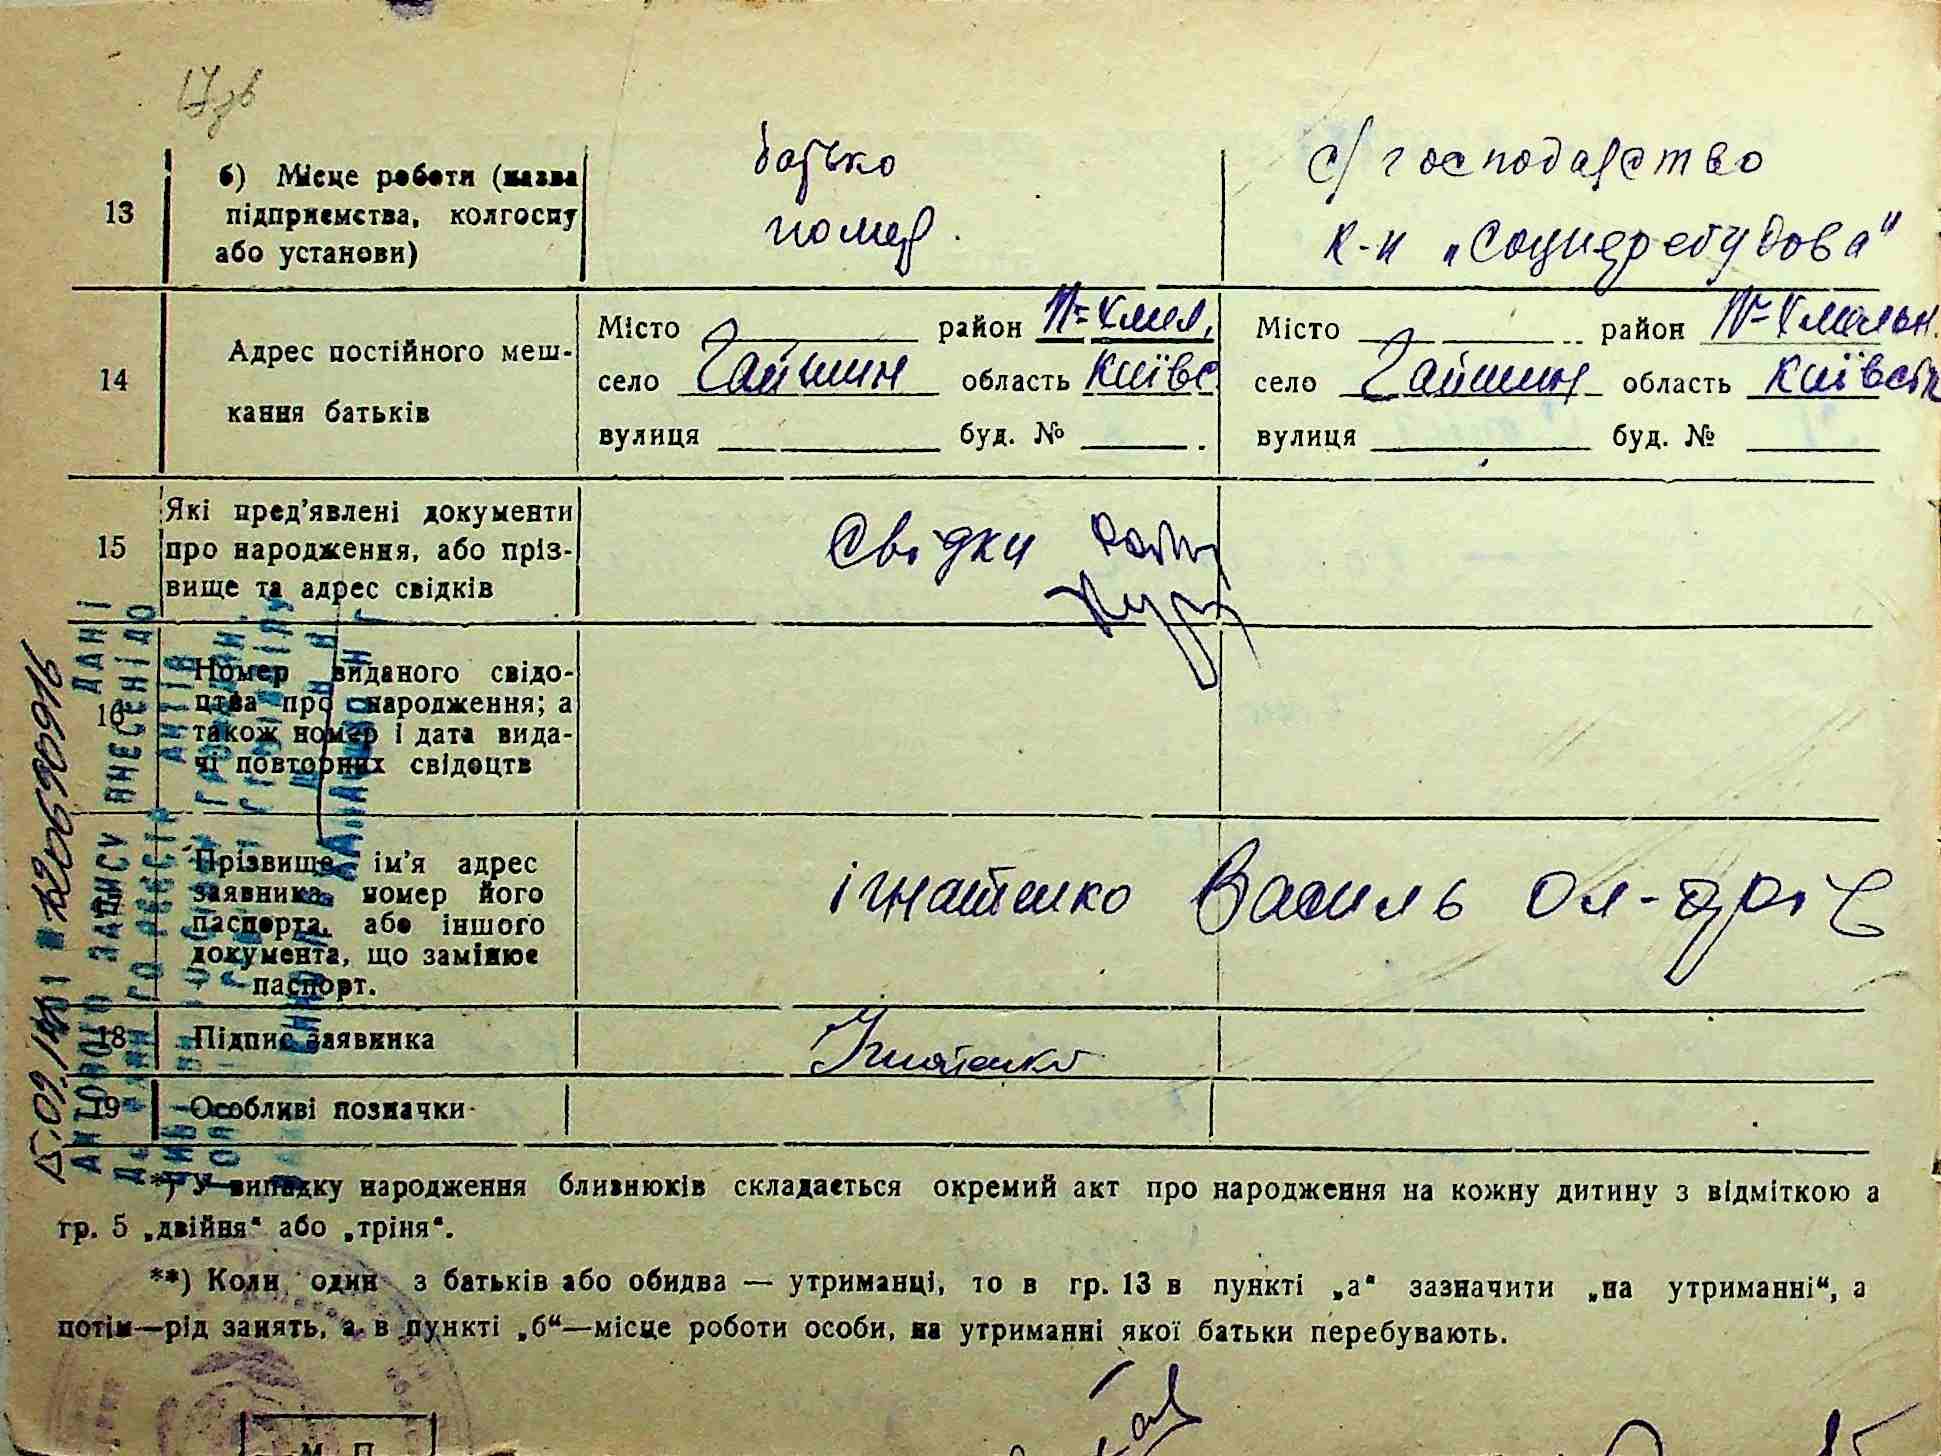 13
б) Місце роботи (назва
підприємства, колгоспу
або установи)
батько
помер.
с/господарство
к-п „Соцперебудова"
14
Адрес постійного меш-
кання батьків
Місто район П-Хмел,
село Гайшин область Київс
вулиця буд. №
Місто район П-Хмельн.
село Гайшин область Київськ
вулиця буд. №
15
Які пред'явлені документи
про народження, або пріз-
вище та адрес свідків
Свідки
16
Номер виданого свідо-
цтва про народження; а
також номер і дата вида-
чі повторних свідоцтв
Прізвище ім'я адрес
заявника, номер його
паспорта, або іншого
документа, що замінює
паспорт.
Ігнатенко Василь Ол-дрів
18
Підпис заявника
Ігнатенко
19
Особливі позначки
*) У випадку народження близнюків складається окремий акт про народження на кожну дитину з відміткою а
гр. 5 „двійня" або „тріня".
**) Коли один з батьків або обидва — утриманці, то в гр. 13 в пункті „а" зазначити „на утриманні", а
потім—рід занять, а в пункті „б"—місце роботи особи, на утриманні якої батьки перебувають.
М. П.
ДАНІ
АКТОВОГО ЗАПИСУ ВНЕСЕНІ ДО